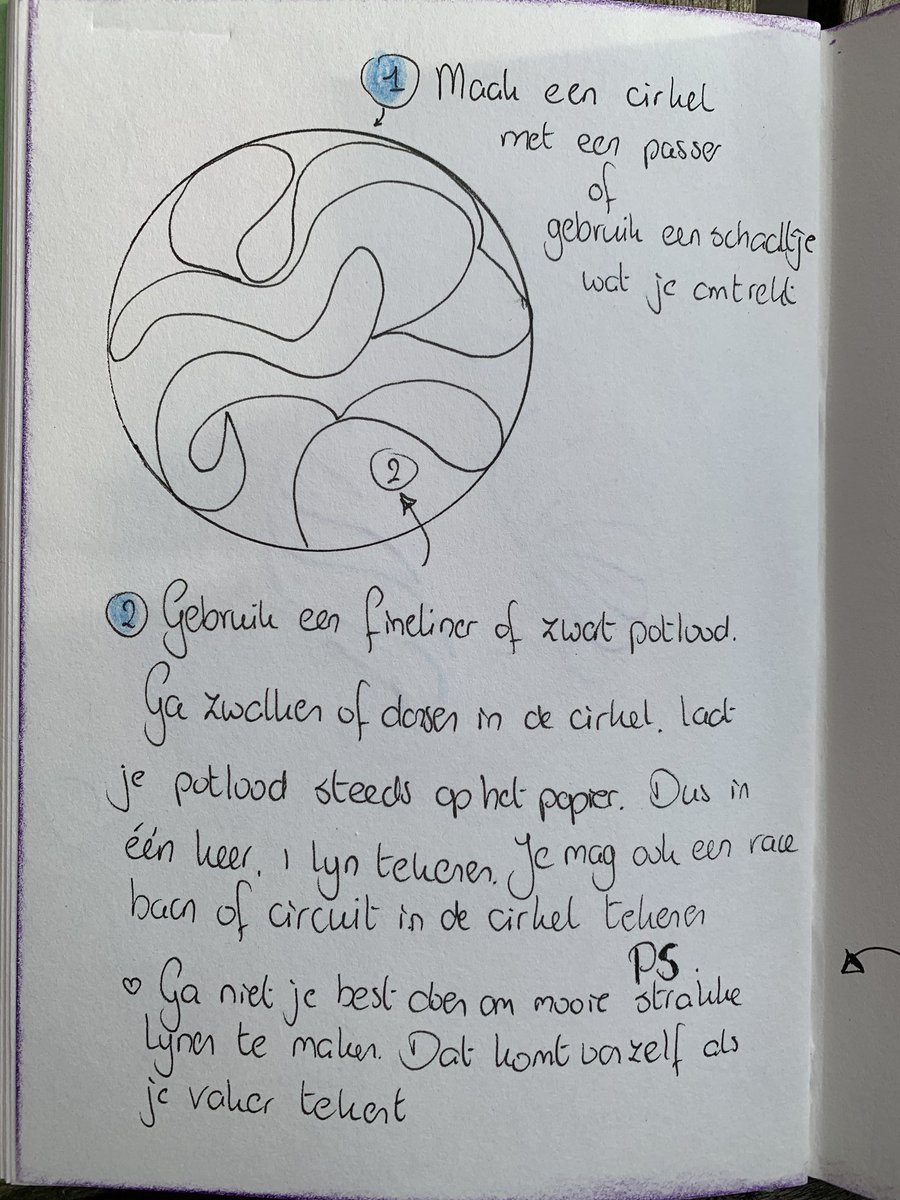 1 Maak een cirkel
met een passer
of
gebruik een schaaltje
wat je omtrekt
2
2 Gebruik een fineliner of zwart potlood.
Ga zwalken of dansen in de cirkel. laat
je potlood steeds op het papier. Dus in
één keer. 1 lijn tekenen. Je mag ook een race
baan of circuit in de cirkel tekenen
PS.
♡ Ga niet je best doen om mooie strakke
lijnen te maken. Dat komt vanzelf als
je vaker tekent